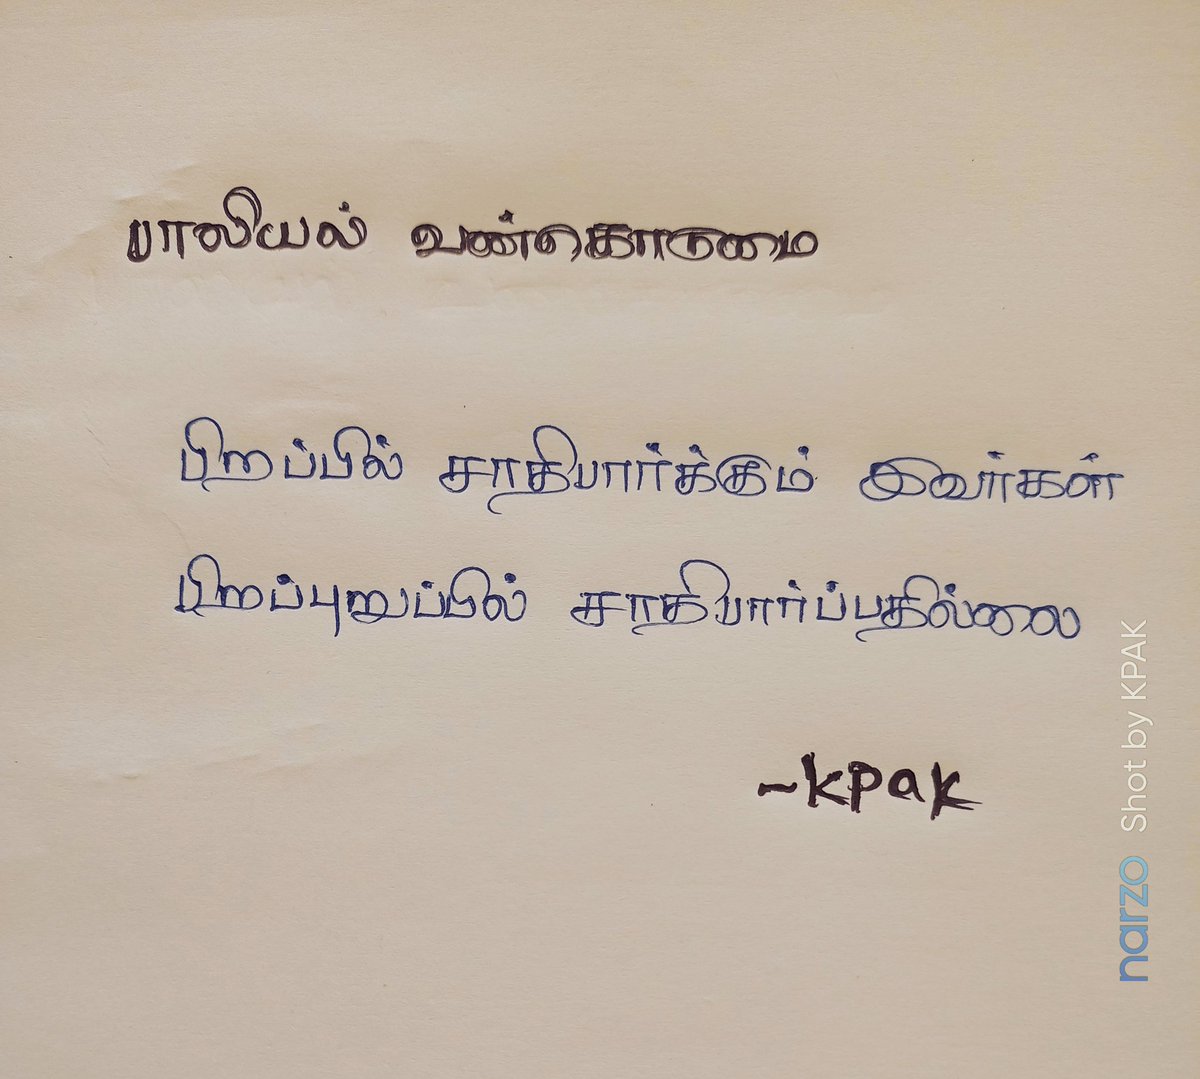 பாலியல் வண்கொடுமை
பிறப்பில் சாதிபார்க்கும் இவர்கள்
பிறப்புறுப்பில் சாதிபார்ப்பதில்லை
~KPaK
narzo Shot by KPAK